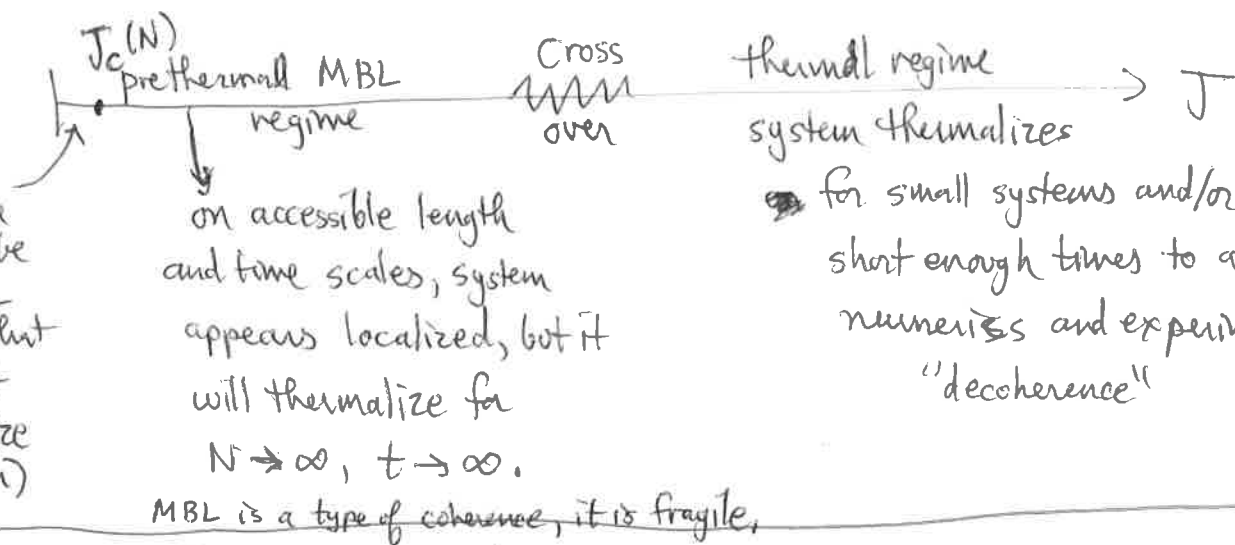 J_c(N)
prethermal MBL
regime
Cross
over
thermal regime
J
system thermalizes
for small systems and/or
short enough times to a
numerics and experi
"decoherence"
on accessible length
and time scales, system
appears localized, but it
will thermalize for
N → ∞, t → ∞.
MBL is a type of coherence, it is fragile.